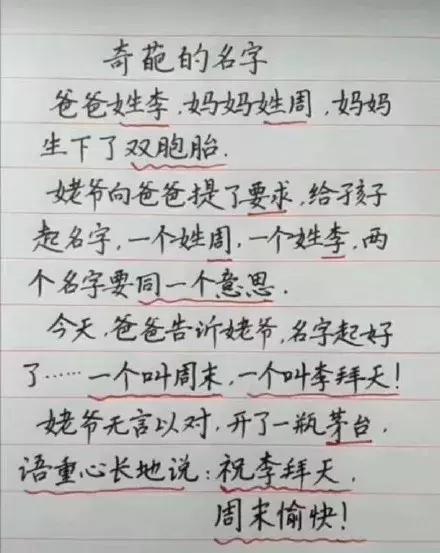 奇葩的名字
爸爸姓李,妈妈姓周,妈妈
生下了双胞胎.
姥爷向爸爸提了要求,给孩子
起名字,一个姓周,一个姓李,两
个名字要同一个意思.
今天,爸爸告诉姥爷,名字起好
了……一个叫周末,一个叫李拜天!
姥爷无言以对,开了一瓶茅台.
语重心长地说:祝李拜天.
周末愉快!